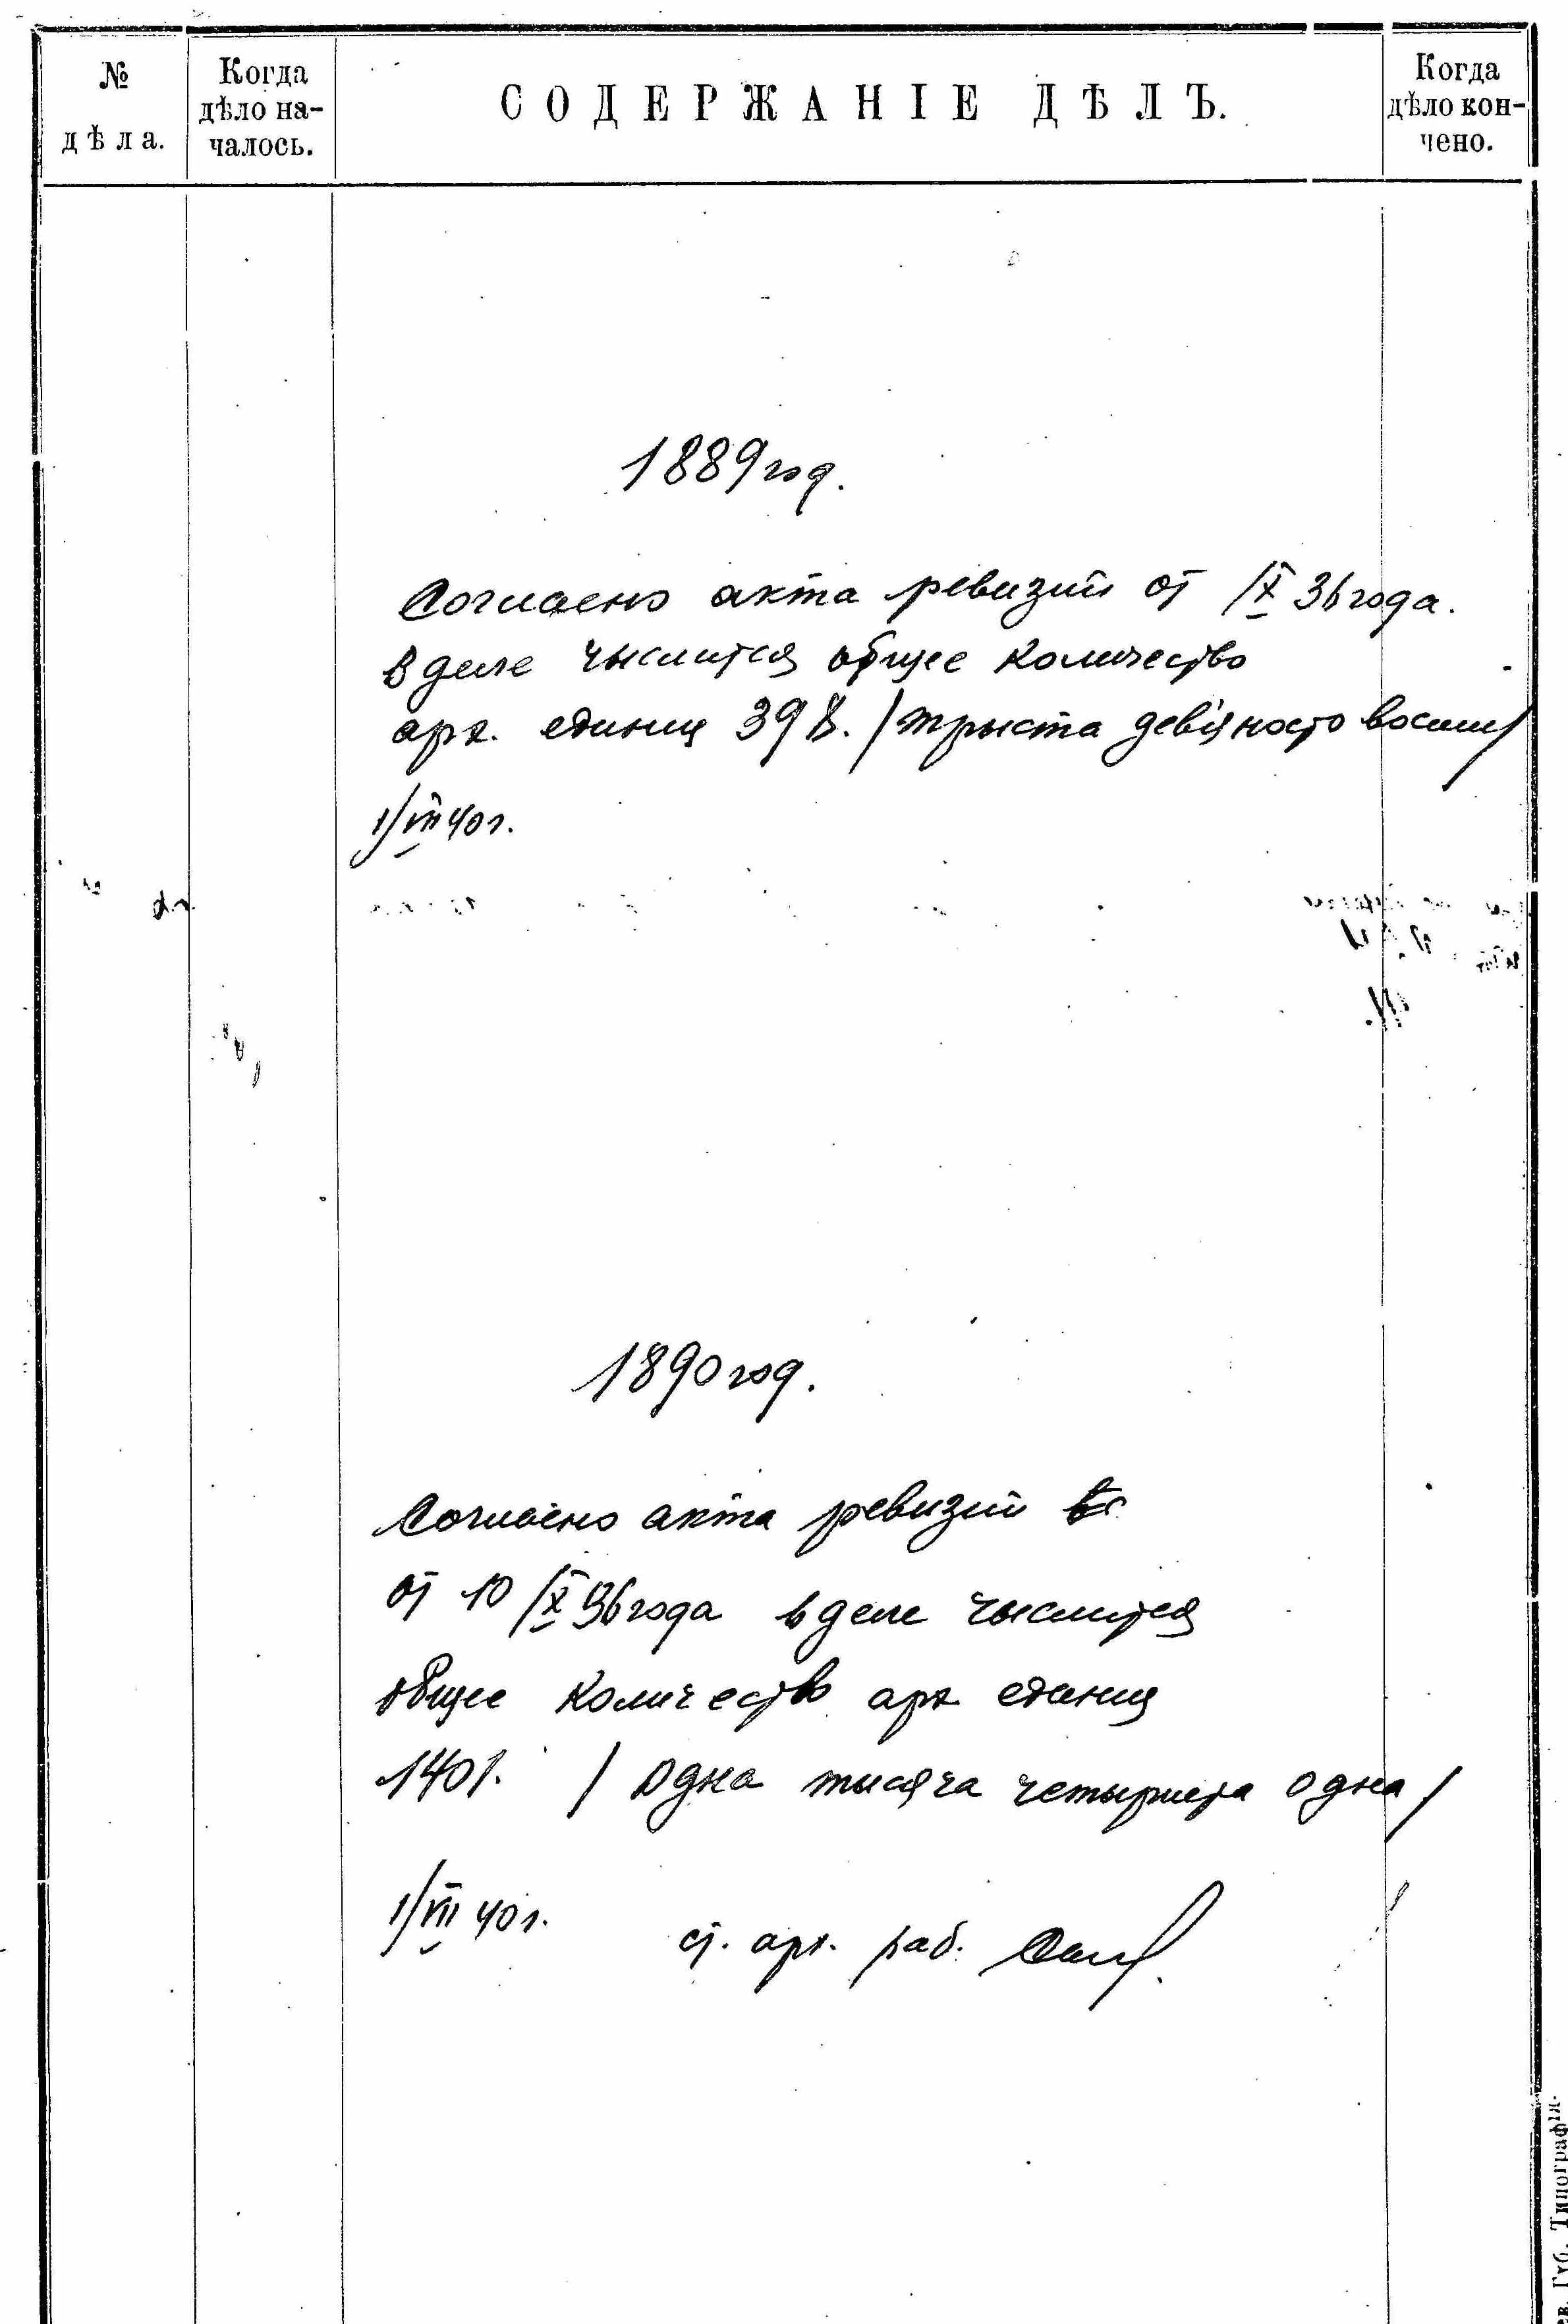 № дѣла.
Когда дѣло на-
чалось.
СОДЕРЖАНІЕ ДѢЛЪ.
Когда дѣло кон-
чено.
1889 год.
Согласно акта ревизий от /IX 36 года.
в деле чыслится общее количество
арх. единиц 398. /трыста девяносто восим/
1/VII 40 г.
1890 год.
Согласно акта ревизий
от 10/IX 36 года в деле чыслится
общее количество арх единиц
1401. / Одна тысяча четыриста одна /
1/VII 40 г.
ст. арх. раб.
Губ. Типографія.